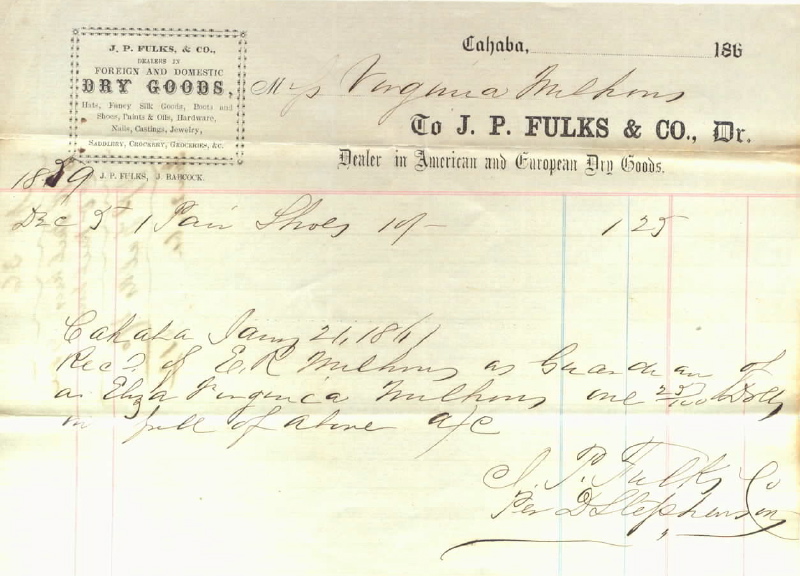 J. P. FULKS, & CO.,
DEALERS IN
FOREIGN AND DOMESTIC
DRY GOODS,
Hats, Fancy Silk Goods, Boots and
Shoes, Paints & Oils, Hardware,
Nails, Castings, Jewelry,
SADDLERY, CROCKERY, GROCERIES, &C.
J. P. FULKS, J. BABCOCK.
Cahaba, 186
Miss Virginia Milhous
To J. P. FULKS & CO., Dr.
Dealer in American and European Dry Goods.
1859
Dec 5 1 Pair Shoes 10/- 1 25
Cahaba Jany 21, 1861
Recd. of E. R Milhous as Guardian of
Eliza Virginia Milhous one 25/100 Dolls
in full of above a/c
J. P. Fulks Co
Per D Stephenson